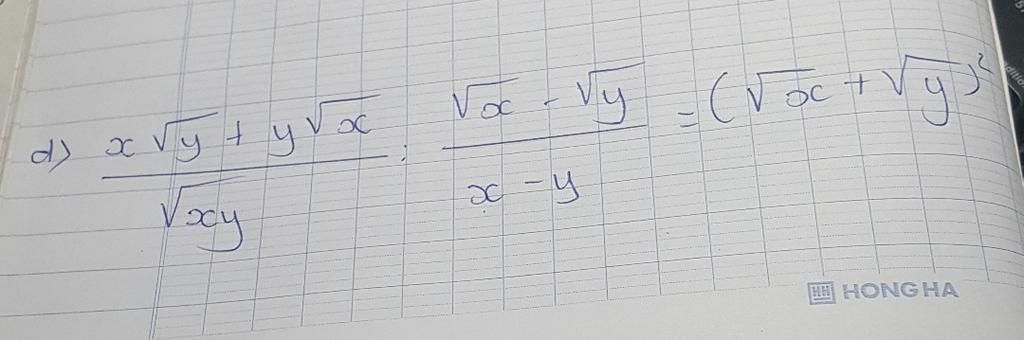 d) \frac{x\sqrt{y} + y\sqrt{x}}{\sqrt{xy}} : \frac{\sqrt{x} - \sqrt{y}}{x - y} = (\sqrt{x} + \sqrt{y})^2
HH HONG HA